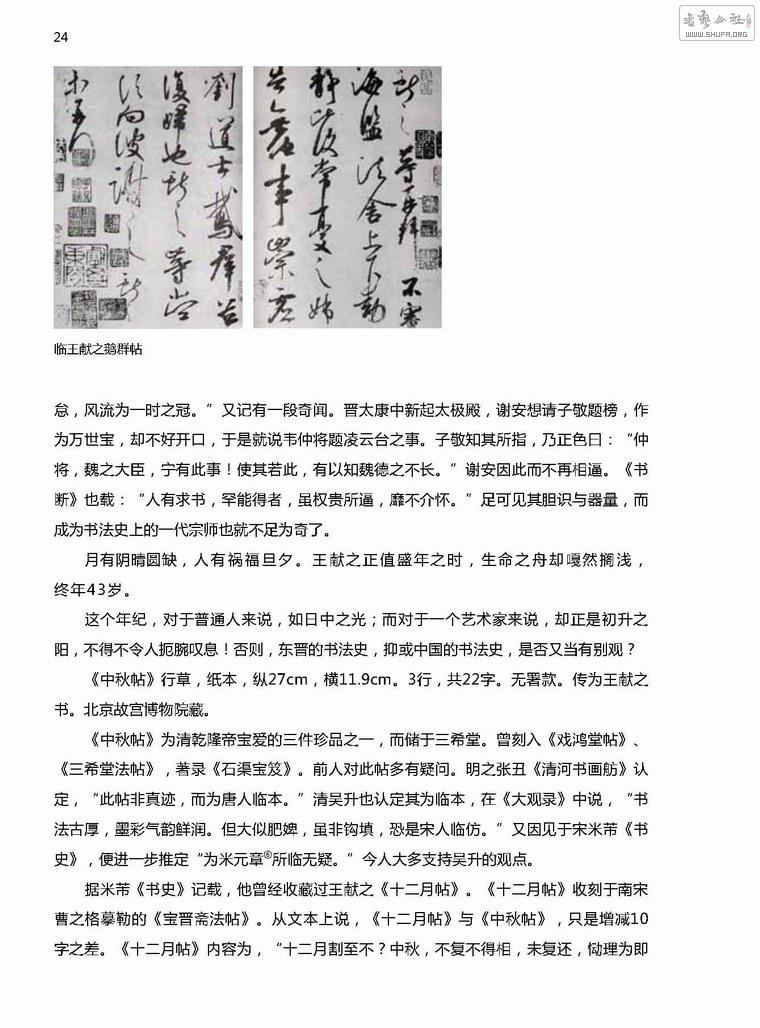 书艺公社
WWW.SHUFA.ORG
24
獻之等再拜不審
海鹽諸舍上下動
靜比復常憂之姉
告無他事崇虛
劉道士鵞群並
復歸也獻之等當
須向彼謝之獻
临王献之鹅群帖
怠，风流为一时之冠。”又记有一段奇闻。晋太康中新起太极殿，谢安想请子敬题榜，作
为万世宝，却不好开口，于是就说韦仲将题凌云台之事。子敬知其所指，乃正色曰：“仲
将，魏之大臣，宁有此事！使其若此，有以知魏德之不长。”谢安因此而不再相逼。《书
断》也载：“人有求书，罕能得者，虽权贵所逼，靡不介怀。”足可见其胆识与器量，而
成为书法史上的一代宗师也就不足为奇了。
月有阴晴圆缺，人有祸福旦夕。王献之正值盛年之时，生命之舟却嘎然搁浅，
终年43岁。
这个年纪，对于普通人来说，如日中之光；而对于一个艺术家来说，却正是初升之
阳，不得不令人扼腕叹息！否则，东晋的书法史，抑或中国的书法史，是否又当有别观？
《中秋帖》行草，纸本，纵27cm，横11.9cm。3行，共22字。无署款。传为王献之
书。北京故宫博物院藏。
《中秋帖》为清乾隆帝宝爱的三件珍品之一，而储于三希堂。曾刻入《戏鸿堂帖》、
《三希堂法帖》，著录《石渠宝笈》。前人对此帖多有疑问。明之张丑《清河书画舫》认
定，“此帖非真迹，而为唐人临本。”清吴升也认定其为临本，在《大观录》中说，“书
法古厚，墨彩气韵鲜润。但大似肥婢，虽非钩填，恐是宋人临仿。”又因见于宋米芾《书
史》，便进一步推定“为米元章⑥所临无疑。”今人大多支持吴升的观点。
据米芾《书史》记载，他曾经收藏过王献之《十二月帖》。《十二月帖》收刻于南宋
曹之格摹勒的《宝晋斋法帖》。从文本上说，《十二月帖》与《中秋帖》，只是增减10
字之差。《十二月帖》内容为，“十二月割至不？中秋，不复不得相，未复还，恸理为即